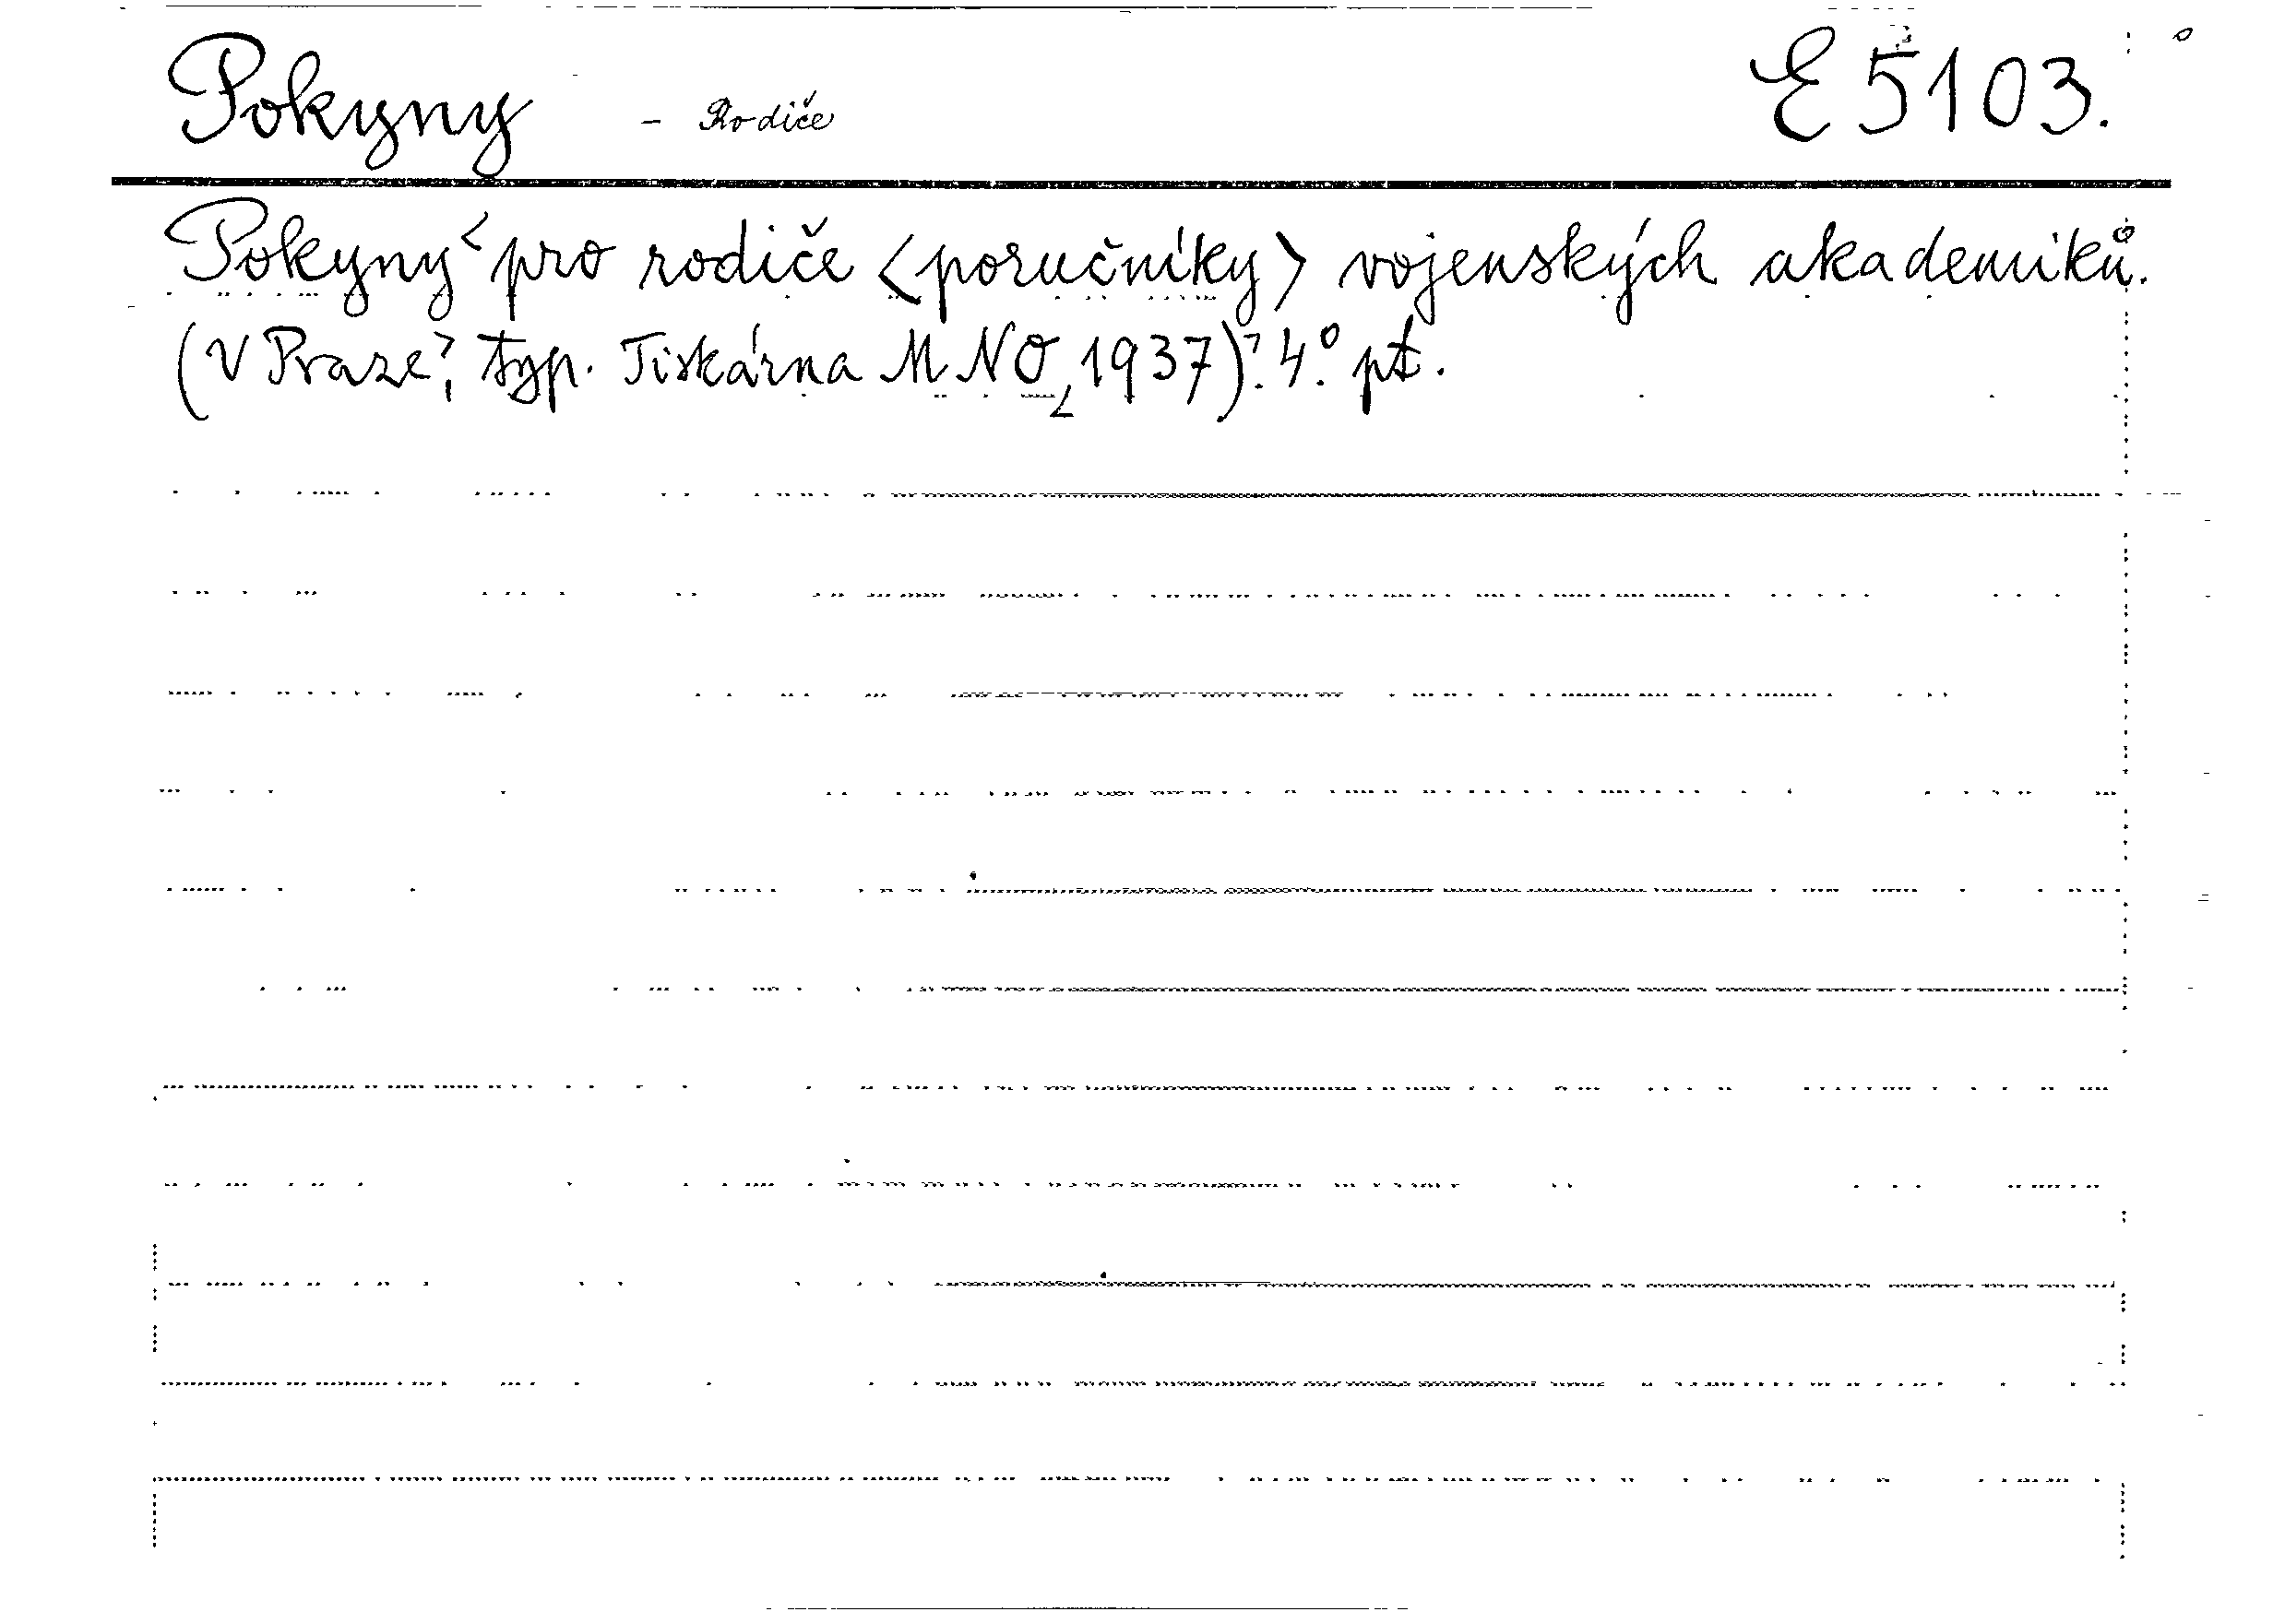 Pokyny – Rodiče E 5103.
Pokyny < pro rodiče <poručníky> vojenských akademiků.
(V Praze>, typ. Tiskárna MNO, < 1937)>. 4.° pt.